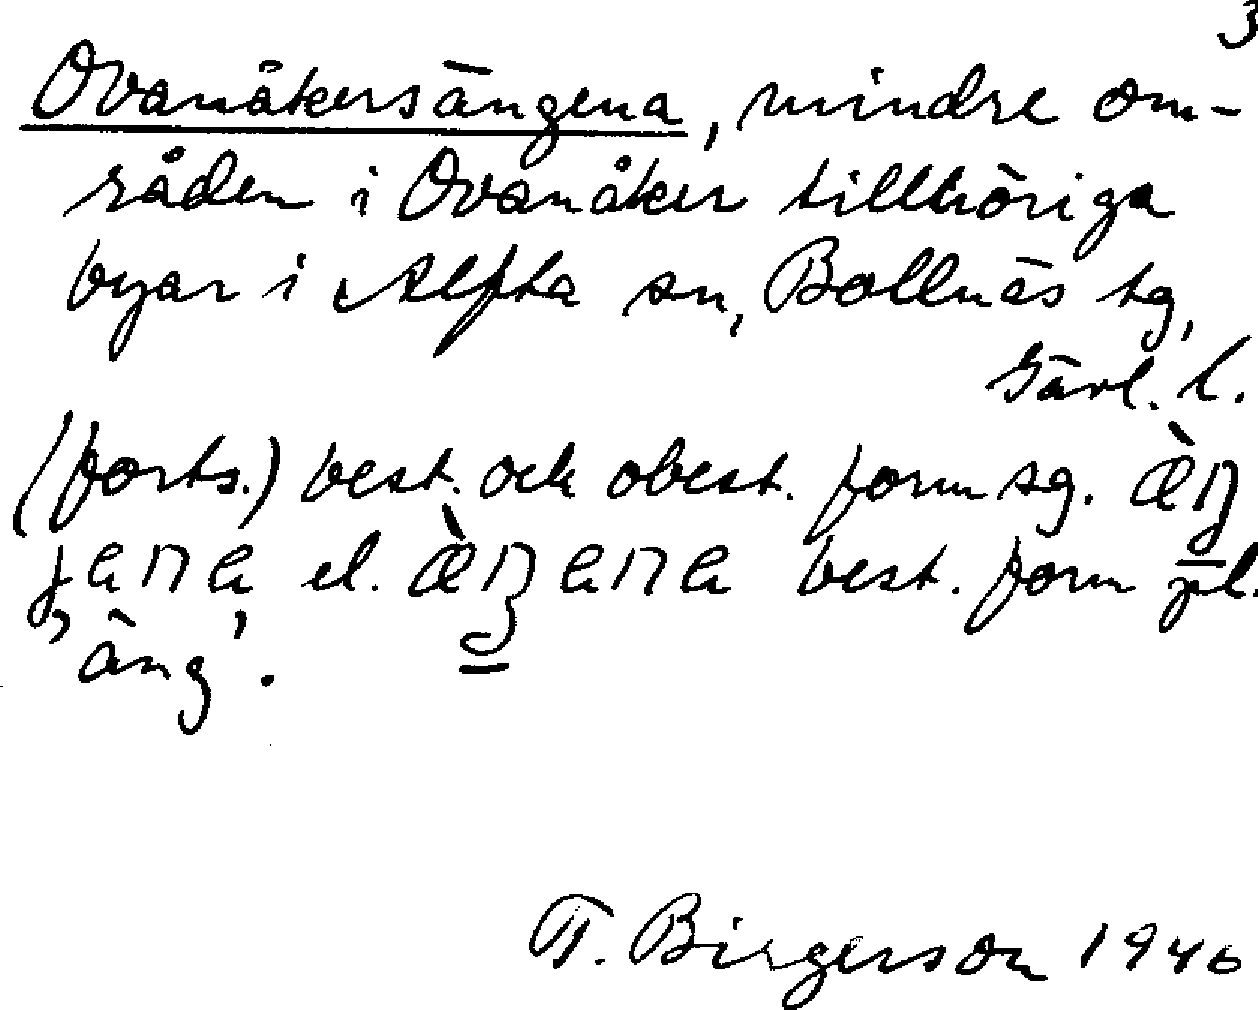 3
Ovanåkersängena, mindre om-
råden i Ovanåker tillhöriga
byar i Alfta sn, Bollnäs tg,
Gävl. l.
(forts.) best. och obest. form sg. æ̀ŋ
jana el. æ̀ŋana best. form pl.
'äng'.
T. Birgerson 1946